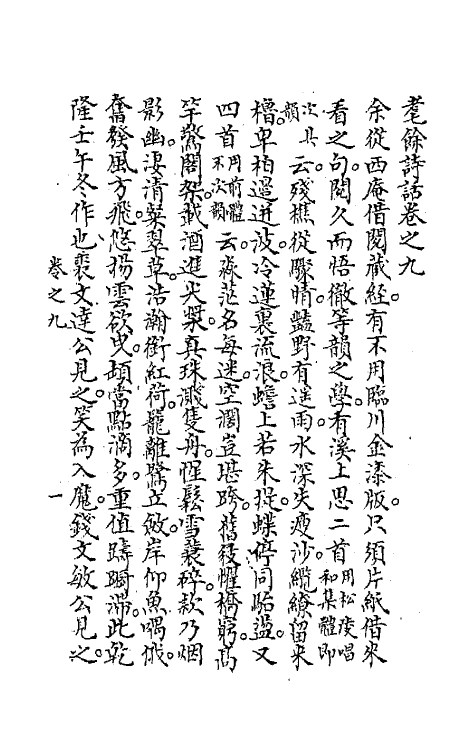 耄餘詩話卷之九
余從西庵借閱藏經有不用臨川金漆版只須片紙借來
看之句閱久而悟徹等韻之學有溪上思二首用松陵唱和集體即
次其韻云殘樵從驟晴豔野有逕雨水深失瘦沙纜繚留來
櫓卑柏過逬波冷蓮裏流浪蟾上若朱捉蝶停同跆盪又
四首用前體不次韻云淼茫名每迷空濶豈堪跨舊役懼橋窮高
竿驚閣架載酒進尖槳真珠濺隻舟惺鬆雪蓑碎欸乃烟
影幽淒清葉翠草浩瀚衝紅荷籠離鷺立敏岸仰魚喁俄
奮發風方飛悠揚雲欲曳頡當點滴多重值躊躇滯此乾
隆壬午冬作也裘文達公見之笑為入魔錢文敏公見之
卷之九 一